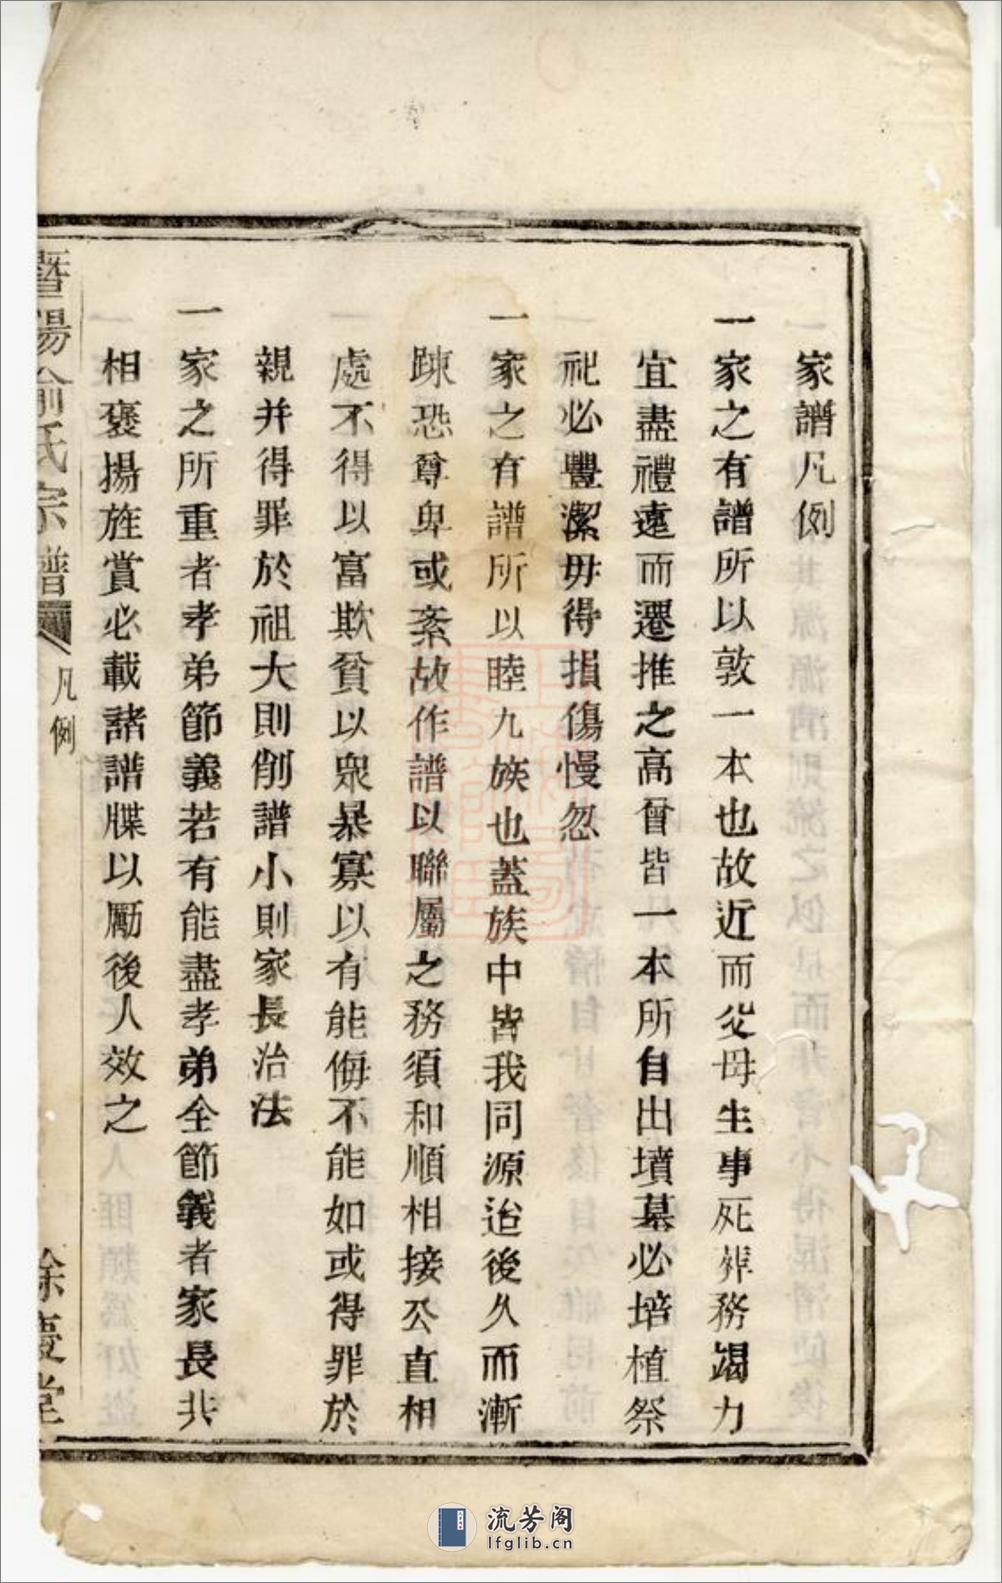 家譜凡例
一家之有譜所以敦一本也故近而父母生事死葬務竭力
宜盡禮遠而遷推之高曾皆一本所自出墳墓必培植祭
祀必豐潔毋得損傷慢忽
一家之有譜所以睦九族也蓋族中皆我同源迨後久而漸
踈恐尊卑或紊故作譜以聯屬之務須和順相接公直相
處不得以富欺貧以眾暴寡以有能侮不能如或得罪於
親并得罪於祖大則削譜小則家長治法
一家之所重者孝弟節義若有能盡孝弟全節義者家長共
相褒揚旌賞必載諸譜牒以勵後人效之
暨陽俞氏宗譜 凡例 餘慶堂
流芳阁
lfglib.cn